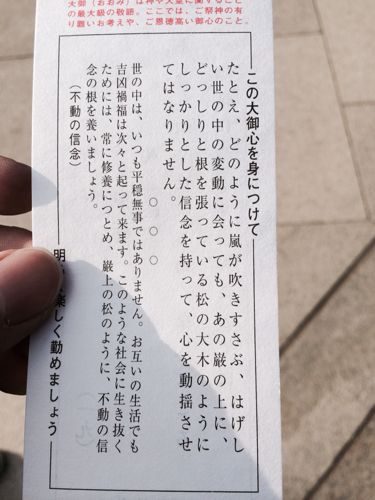 大御(おおみ)は神や天皇に関すること
の最大級の敬語。ここでは、ご祭神の有
り難いお考えや、ご恩徳高い御心のこと。
この大御心を身につけて
たとえ、どのように嵐が吹きすさぶ、はげし
い世の中の変動に会っても、あの巌の上に、
どっしりと根を張っている松の大木のように
しっかりとした信念を持って、心を動揺させ
てはなりません。
○○○
世の中は、いつも平穏無事ではありません。お互いの生活でも
吉凶禍福は次々と起って来ます。このような社会に生き抜く
ためには、常に修養につとめ、巌上の松のように、不動の信
念の根を養いましょう。
(不動の信念)
明 楽しく勤めましょう